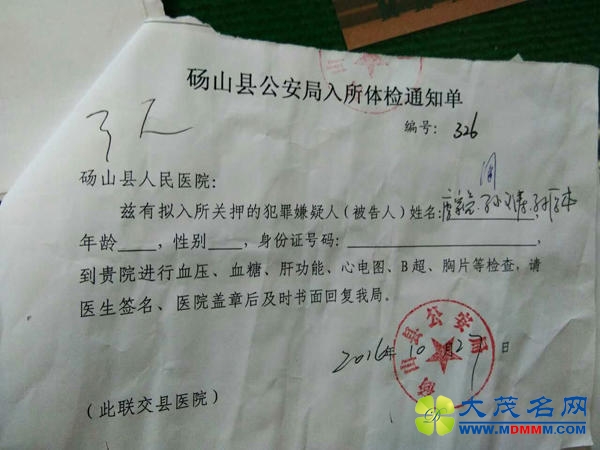 砀山县公安局入所体检通知单
编号: 326
砀山县人民医院:
兹有拟入所关押的犯罪嫌疑人(被告人)姓名:
年龄____,性别____,身份证号码:____________________,
到贵院进行血压、血糖、肝功能、心电图、B超、胸片等检查,请
医生签名、医院盖章后及时书面回复我局。
砀山县公安局
2016年10月27日
(此联交县医院)
大茂名网
WWW.MDMMM.COM